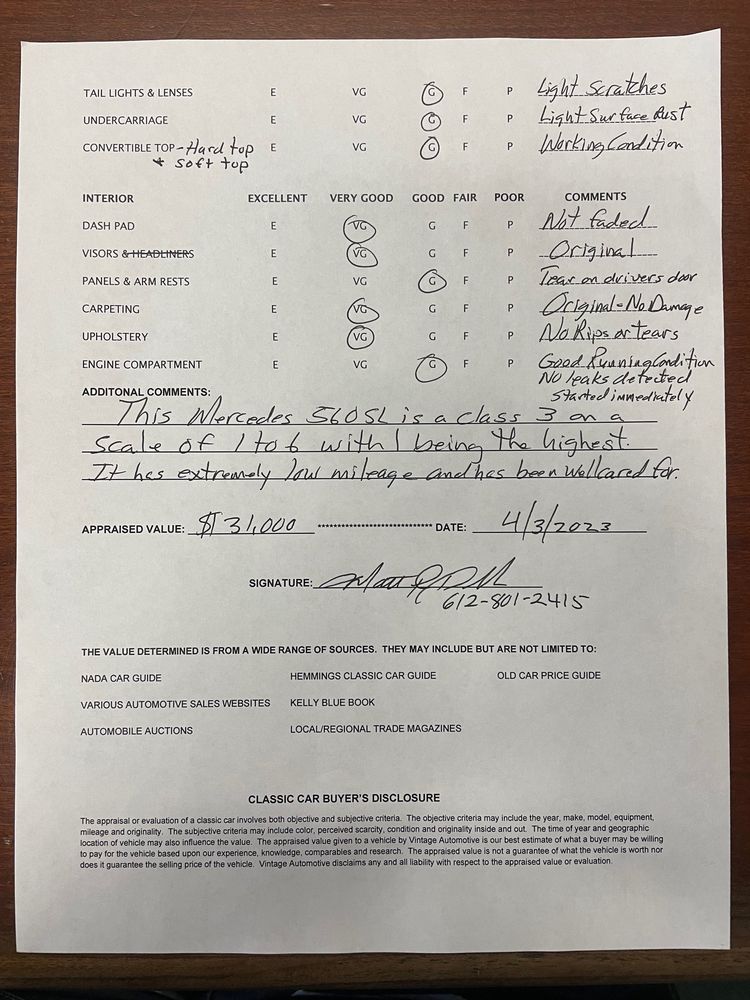 TAIL LIGHTS & LENSES E VG G F P Light Scratches
UNDERCARRIAGE E VG G F P Light Surface Rust
CONVERTIBLE TOP - Hard top E VG G F P Working Condition
* soft top
INTERIOR EXCELLENT VERY GOOD GOOD FAIR POOR COMMENTS
DASH PAD E VG G F P Not faded
VISORS & HEADLINERS E VG G F P Original
PANELS & ARM RESTS E VG G F P Tear on drivers door
CARPETING E VG G F P Original - No Damage
UPHOLSTERY E VG G F P No Rips or tears
ENGINE COMPARTMENT E VG G F P Good Running Condition
No leaks detected
Started immediately
ADDITONAL COMMENTS:
This Mercedes 560SL is a class 3 on a
scale of 1 to 6 with 1 being the highest.
It has extremely low mileage and has been well cared for.
APPRAISED VALUE: $31,000 **************************** DATE: 4/3/2023
SIGNATURE:
612-801-2415
THE VALUE DETERMINED IS FROM A WIDE RANGE OF SOURCES. THEY MAY INCLUDE BUT ARE NOT LIMITED TO:
NADA CAR GUIDE HEMMINGS CLASSIC CAR GUIDE OLD CAR PRICE GUIDE
VARIOUS AUTOMOTIVE SALES WEBSITES KELLY BLUE BOOK
AUTOMOBILE AUCTIONS LOCAL/REGIONAL TRADE MAGAZINES
CLASSIC CAR BUYER'S DISCLOSURE
The appraisal or evaluation of a classic car involves both objective and subjective criteria. The objective criteria may include the year, make, model, equipment,
mileage and originality. The subjective criteria may include color, perceived scarcity, condition and originality inside and out. The time of year and geographic
location of vehicle may also influence the value. The appraised value given to a vehicle by Vintage Automotive is our best estimate of what a buyer may be willing
to pay for the vehicle based upon our experience, knowledge, comparables and research. The appraised value is not a guarantee of what the vehicle is worth nor
does it guarantee the selling price of the vehicle. Vintage Automotive disclaims any and all liability with respect to the appraised value or evaluation.